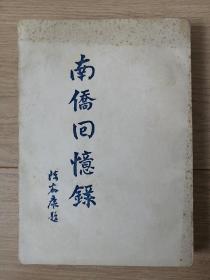 南僑回憶錄
陈嘉庚題